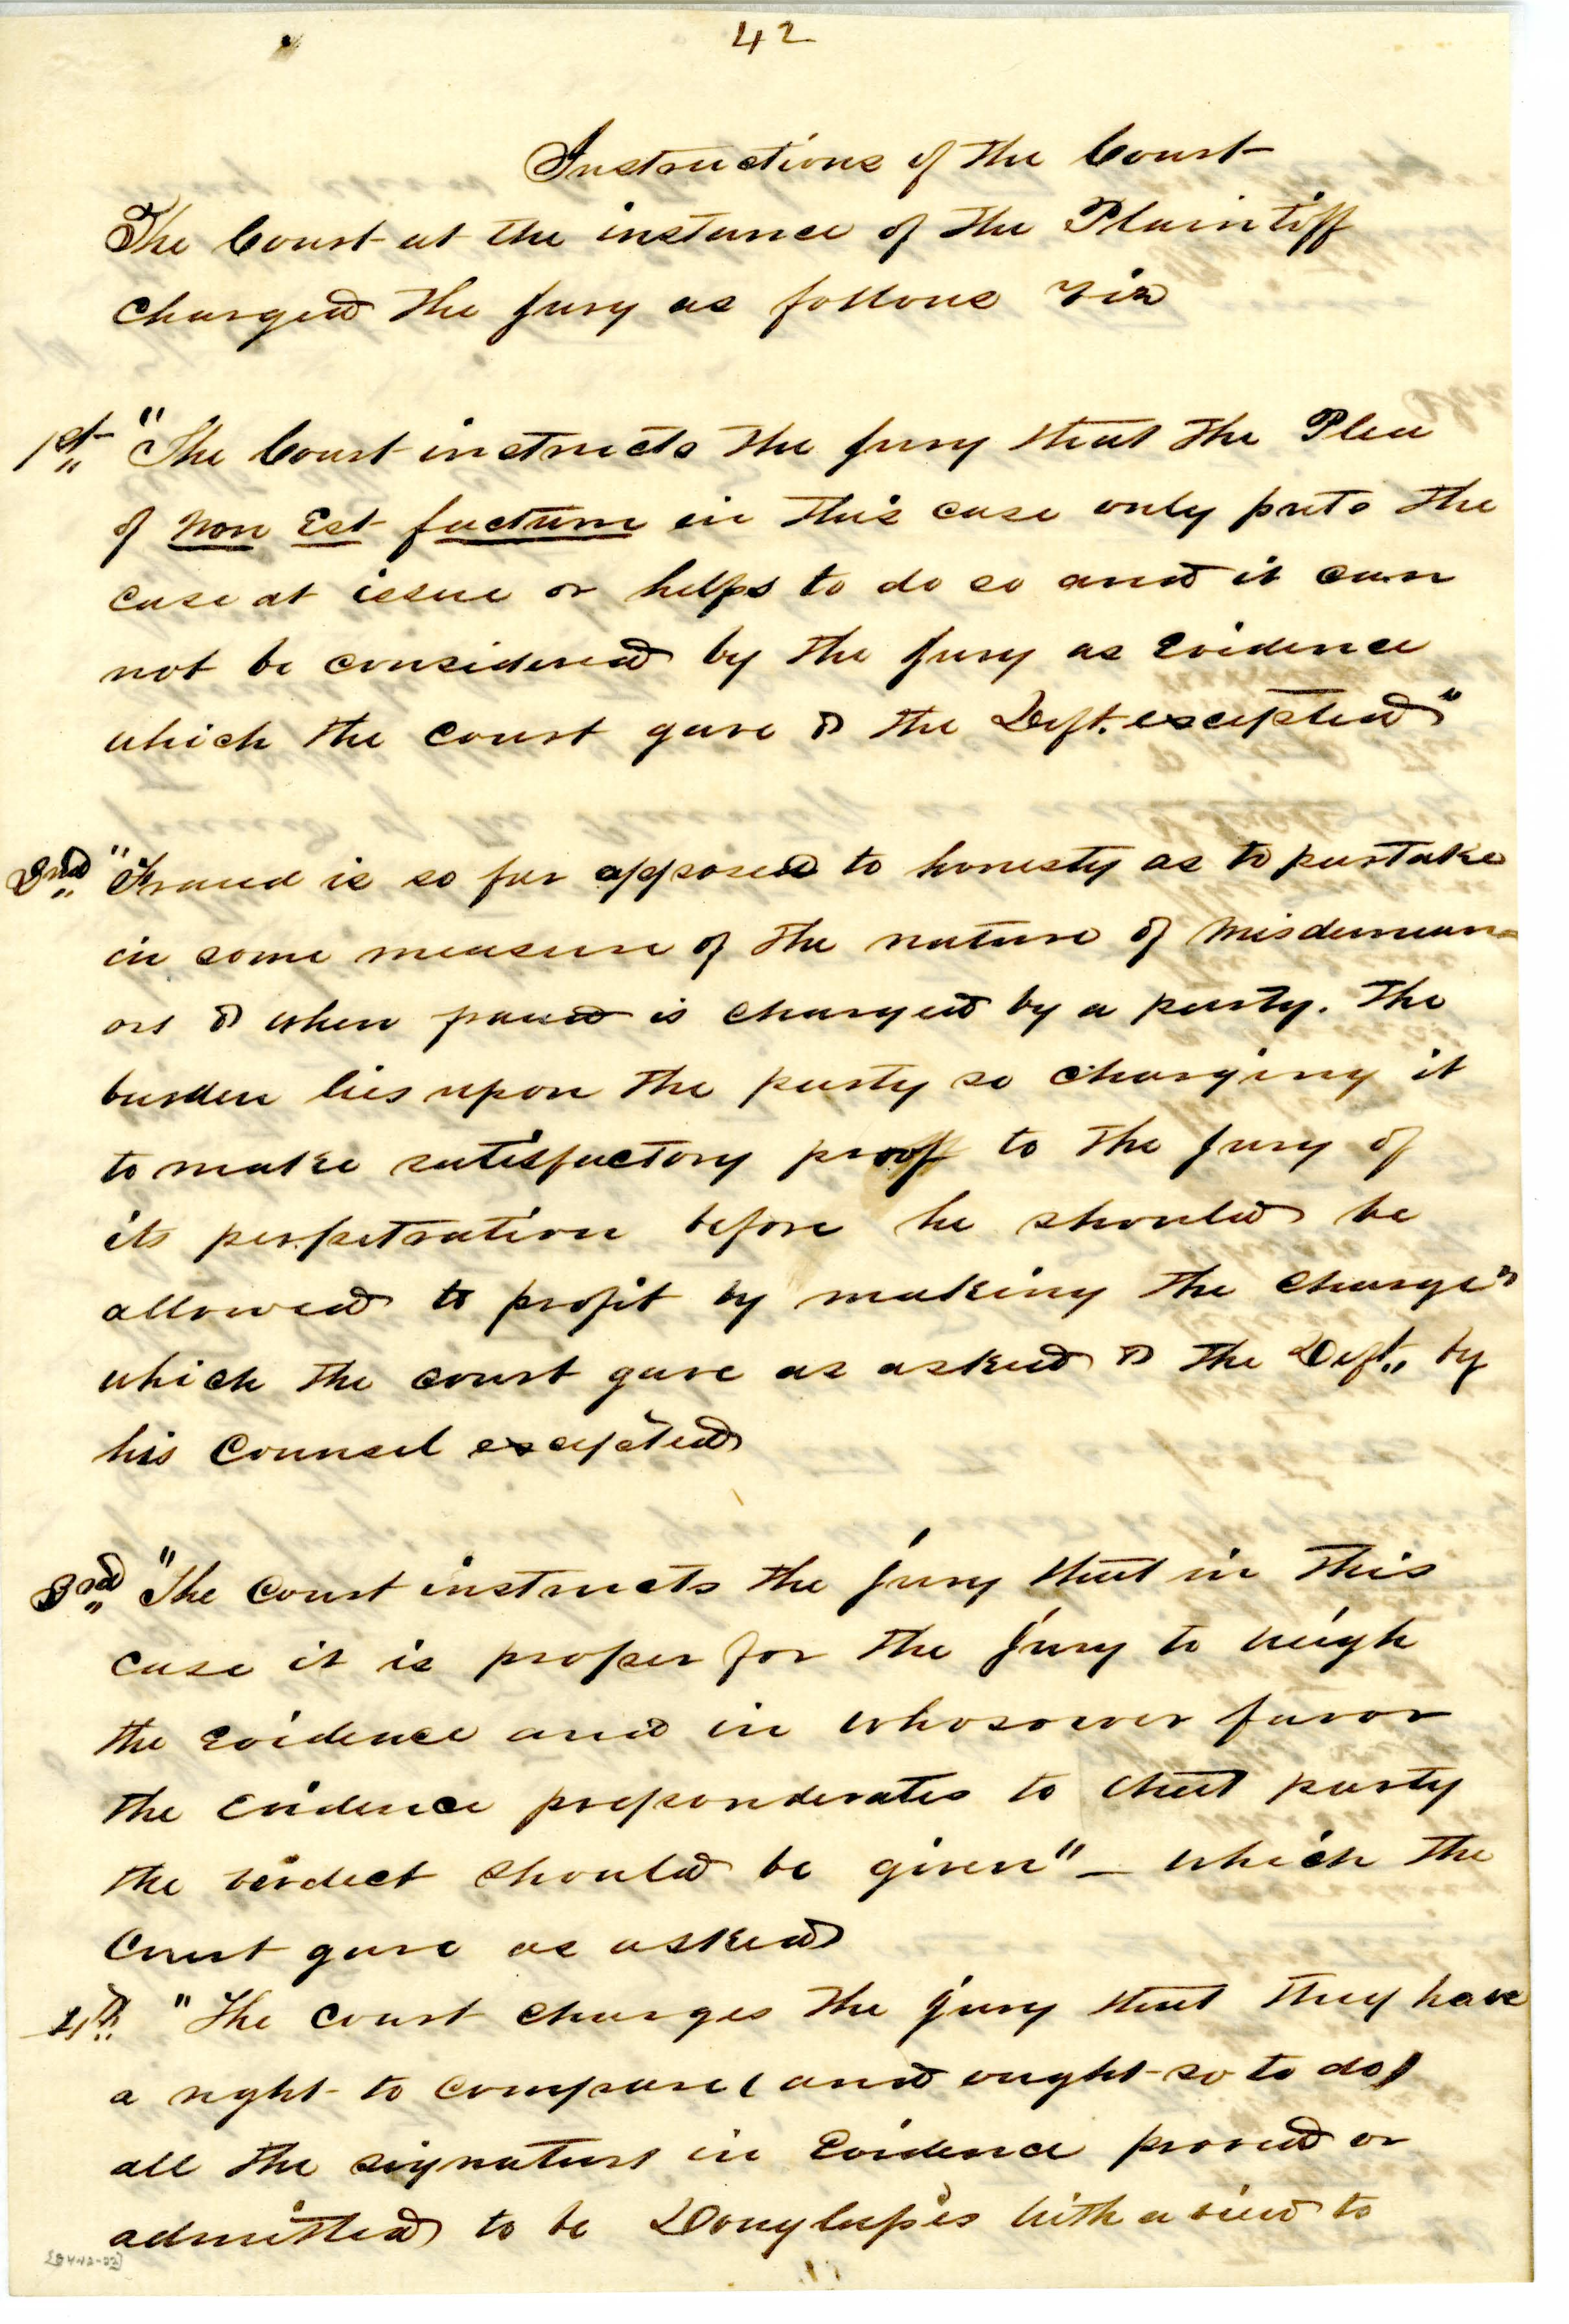 42
Instructions of the Court
The Court at the instance of the Plaintiff
charged the jury as follows viz
1st " The Court instructs the jury that the Plea
of Non Est factum in this case only puts the
case at issue or helps to do so and it can
not be considered by the jury as Evidence
which the court gave & the Deft. excepted"
2nd " Fraud is so far opposed to honesty as to partake
in some measure of the nature of misdemean=
ors & when fraud is charged by a party. The
burden lies upon the party so charging it
to make satisfactory proof to the jury of
its perpetration before he should be
allowed to profit by making the charge"
which the court gave as asked & the Deft,, by
his Counsel excepted
3rd " The Court instructs the jury that in this
case it is proper for the jury to weigh
the Evidence and in whosoever favor
the Evidence preponderates to that party
the verdict should be given" – which the
Court gave as asked
4th " The court charges the jury that they have
a right to compare (and ought so to do)
all the signatures in Evidence proved or
admitted to be with a view to